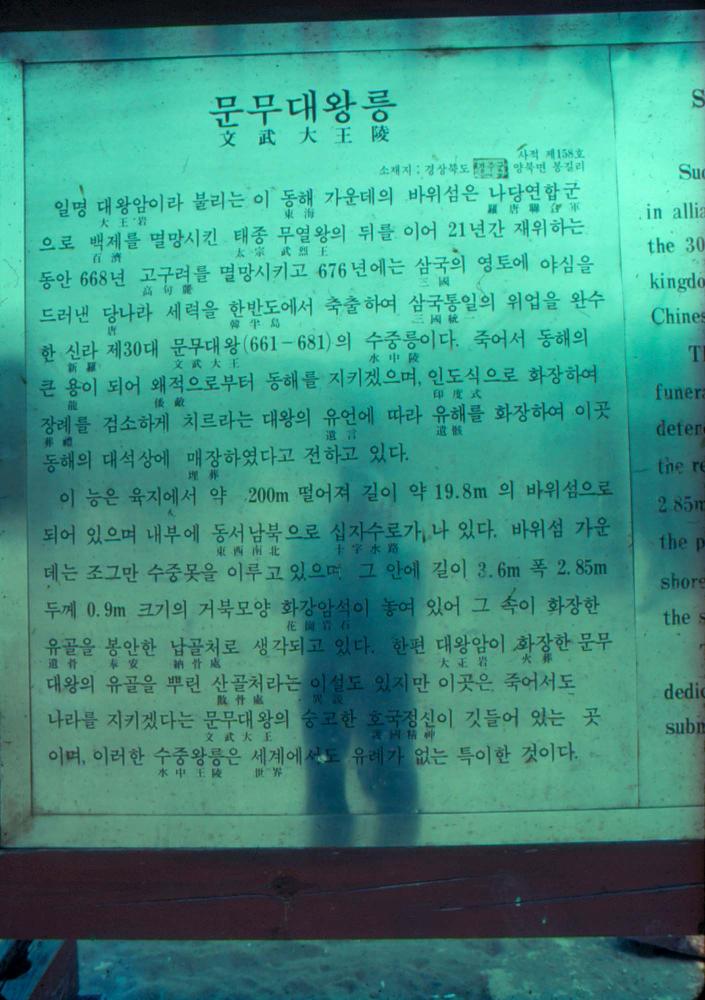 문무대왕릉
文武大王陵
사적 제158호
소재지 : 경상북도 경주군 양북면 봉길리
일명 대왕암이라 불리는 이 동해 가운데의 바위섬은 나당연합군
大王岩 東海 羅唐聯合軍
으로 백제를 멸망시킨 태종 무열왕의 뒤를 이어 21년간 재위하는
百濟 太宗 武烈王
동안 668년 고구려를 멸망시키고 676년에는 삼국의 영토에 야심을
高句麗 三國
드러낸 당나라 세력을 한반도에서 축출하여 삼국통일의 위업을 완수
唐 韓半島 三國統一
한 신라 제30대 문무대왕(661-681)의 수중릉이다. 죽어서 동해의
新羅 文武大王 水中陵
큰 용이 되어 왜적으로부터 동해를 지키겠으며, 인도식으로 화장하여
龍 倭敵 印度式
장례를 검소하게 치르라는 대왕의 유언에 따라 유해를 화장하여 이곳
葬禮 遺言 遺骸
동해의 대석상에 매장하였다고 전하고 있다.
埋葬
이 능은 육지에서 약 200m 떨어져 길이 약 19.8m 의 바위섬으로
되어 있으며 내부에 동서남북으로 십자수로가 나 있다. 바위섬 가운
東西南北 十字水路
데는 조그만 수중못을 이루고 있으며 그 안에 길이 3.6m 폭 2.85m
두께 0.9m 크기의 거북모양 화강암석이 놓여 있어 그 속이 화장한
花崗岩石
유골을 봉안한 납골처로 생각되고 있다. 한편 대왕암이 화장한 문무
遺骨 奉安 納骨處 大王岩 火葬
대왕의 유골을 뿌린 산골처라는 이설도 있지만 이곳은 죽어서도
散骨處 異說
나라를 지키겠다는 문무대왕의 숭고한 호국정신이 깃들어 있는 곳
文武大王 護國精神
이며, 이러한 수중왕릉은 세계에서도 유례가 없는 특이한 것이다.
水中王陵 世界
S
Suc
in allia
the 30
kingdo
Chines
T
funera
deter
the re
2.85m
the p
shore
the s
T
dedic
subm